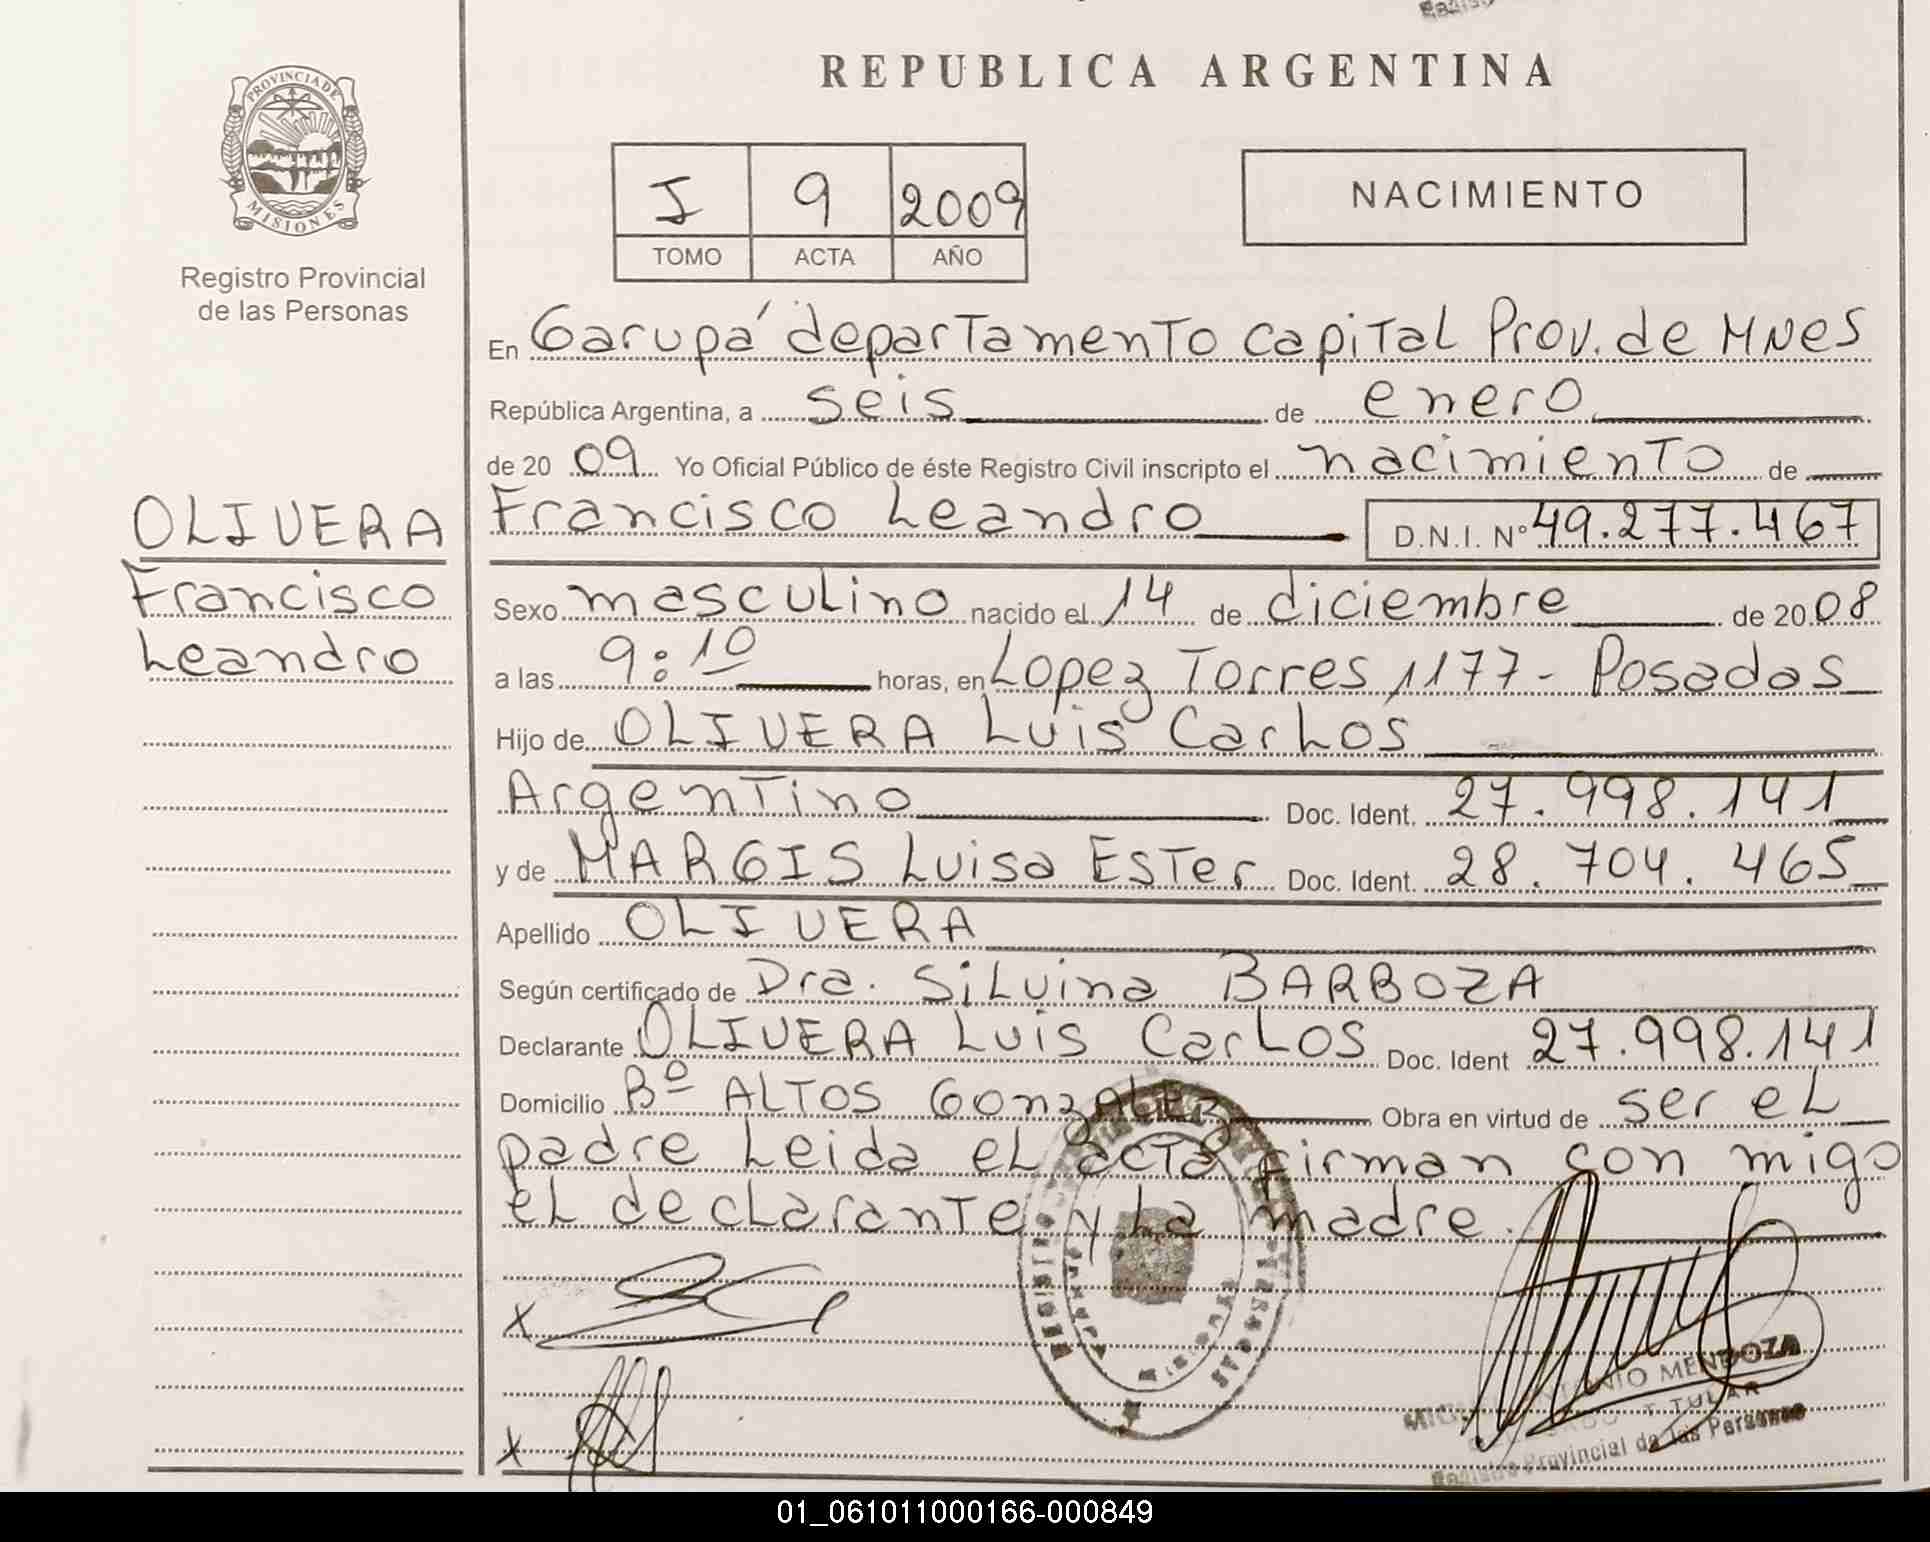 PROVINCIA DE
MISIONES
Registro Provincial
de las Personas
OLIVERA
Francisco
Leandro
REPUBLICA ARGENTINA
I 9 2009
TOMO ACTA AÑO
NACIMIENTO
En Garupá departamento Capital Prov. de MNES
República Argentina, a seis de enero
de 20 09 Yo Oficial Público de éste Registro Civil inscripto el nacimiento de
Francisco Leandro D.N.I. Nº 49.277.467
Sexo masculino nacido el 14 de diciembre de 20 08
a las 9:10 horas, en Lopez Torres 1177 - Posadas
Hijo de OLIVERA Luis Carlos
Argentino Doc. Ident. 27.998.141
y de MARGIS Luisa Ester Doc. Ident. 28.704.465
Apellido OLIVERA
Según certificado de Dra. Silvina BARBOZA
Declarante OLIVERA Luis Carlos Doc. Ident 27.998.141
Domicilio Bº ALTOS GonzALEz Obra en virtud de ser el
padre Leida el acta firman con migo
el declarante y la madre.
X
X
ANTONIO MENDOZA
TITULAR
Registro Provincial de las Personas
01_061011000166-000849